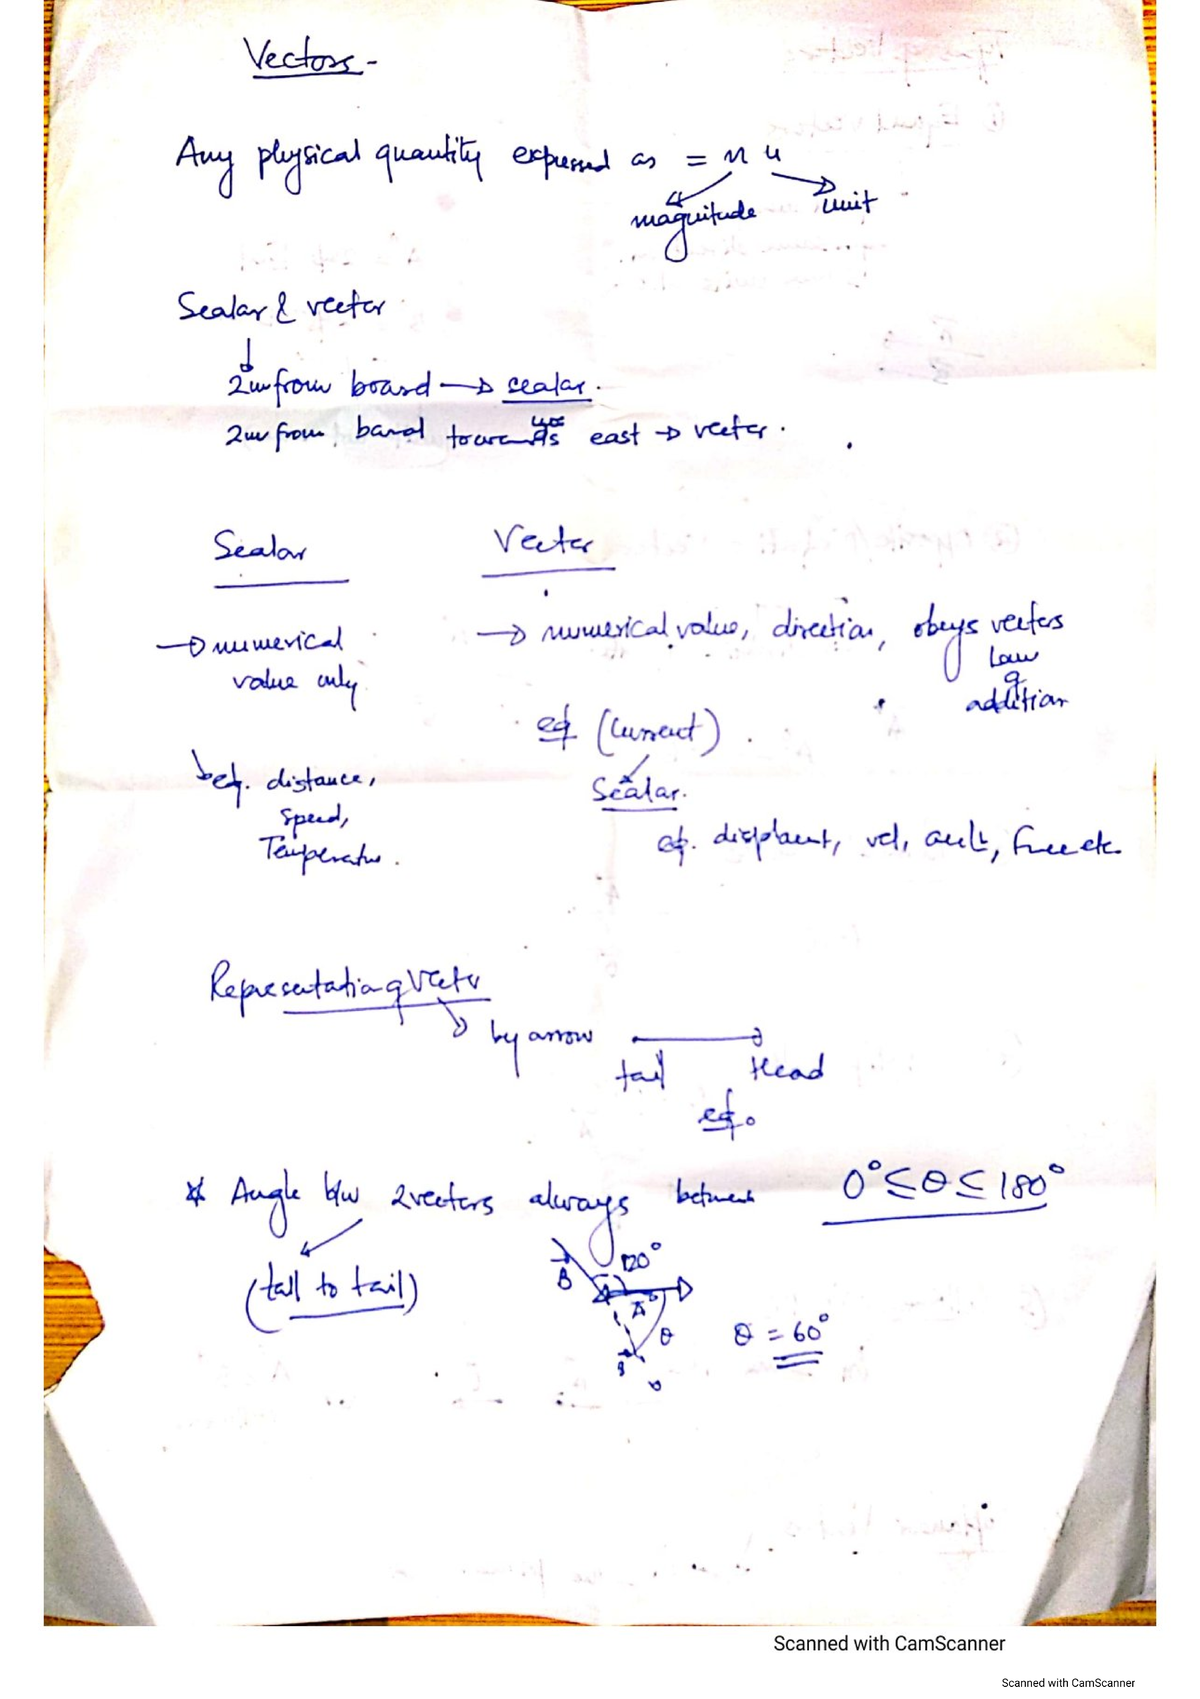 Vectors -
Any physical quantity expressed as = n u
magnitude unit
Scalar & vector
2m from board → scalar.
2m from board towards east → vector.
Scalar Vector
→ numerical value only
→ numerical value, direction, obeys vectors law of addition
eg (Current)
Scalar.
eg. distance, speed, Temperatur.
eg. displacemt, vel, accln, Force etc.
Representation of Vector
by arrow
tail Head
eg.
* Angle b/w 2 vectors always between 0° ≤ θ ≤ 180°
(tail to tail)
B 120°
A
θ θ = 60°
B
Scanned with CamScanner
Scanned with CamScanner